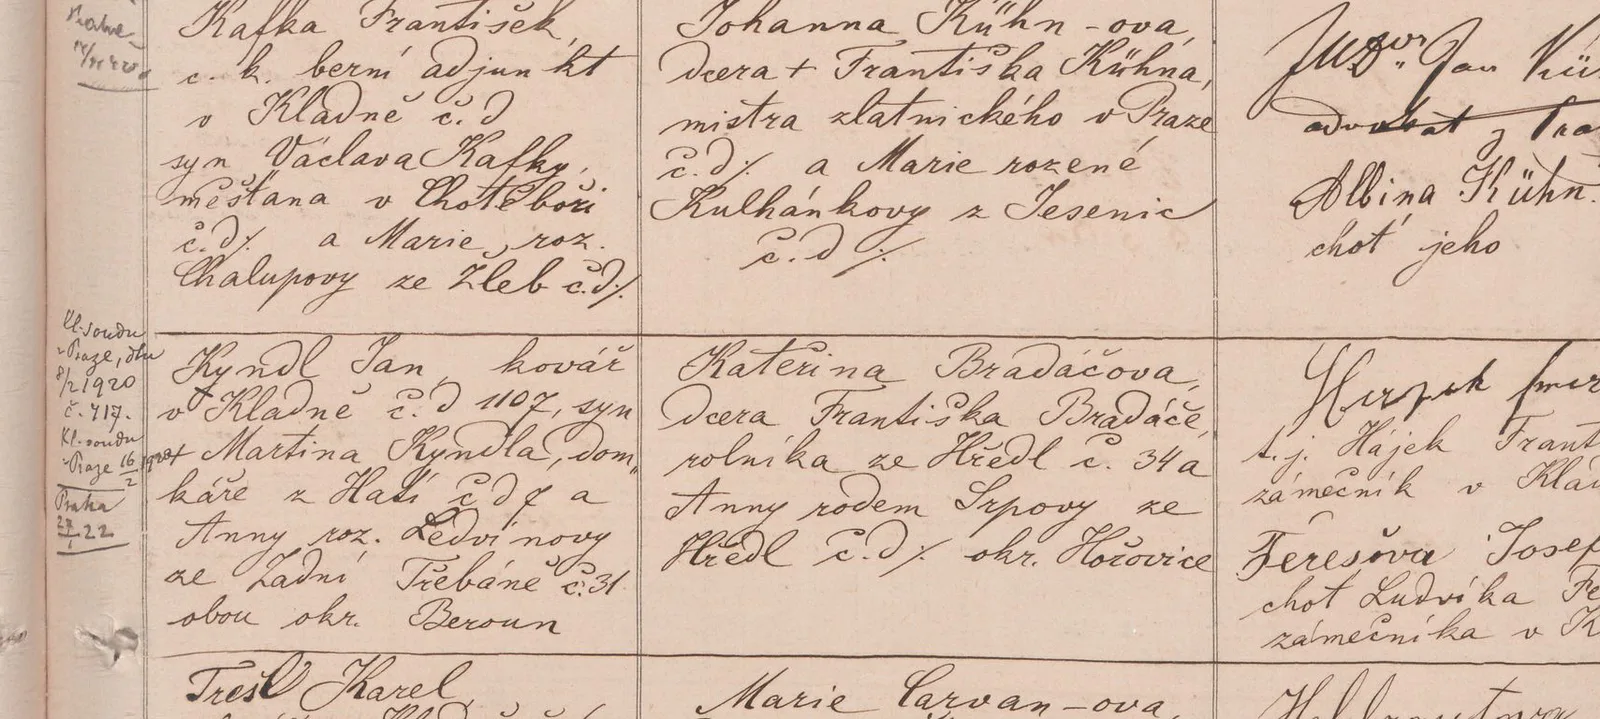 Kafka František,
c. k. berní adjunkt
v Kladně č. d
syn Václava Kafky,
měšťana v Chotěboři
č. d /. a Marie, roz.
Chalupovy ze Žleb č. d /.
Johanna Kühn-ova,
dcera + Františka Kühna,
mistra zlatnického v Praze
č. d /. a Marie rozené
Kulhánkovy z Jesenic
č. d /.
JUDor. Jan
advokát z
Albina Kühn
choť jeho
Kl. soudu
v Praze, dto
8/2 1920
č. 717.
Kl. soudu
v Praze 16/2 1920
Praha
22
Kyndl Jan, kovář
v Kladně č. d 1107, syn
+ Martina Kyndla, dom„
káře z Hatí č d 7 a
Anny roz. Ledvinovy
ze Zadní Třebáně č. 31
obou okr. Beroun
Kateřina Bradáčova,
dcera Františka Bradáče,
rolníka ze Hředl č. 34 a
Anny rodem Srpovy ze
Hředl č. d /. okr. Hořovice
t. j. Hájek Frant
zámečník v Klad
Ferešova Josef
choť Ludvíka Fe
zámečníka v K
Trešl Karel,
Marie Carvan-ova,